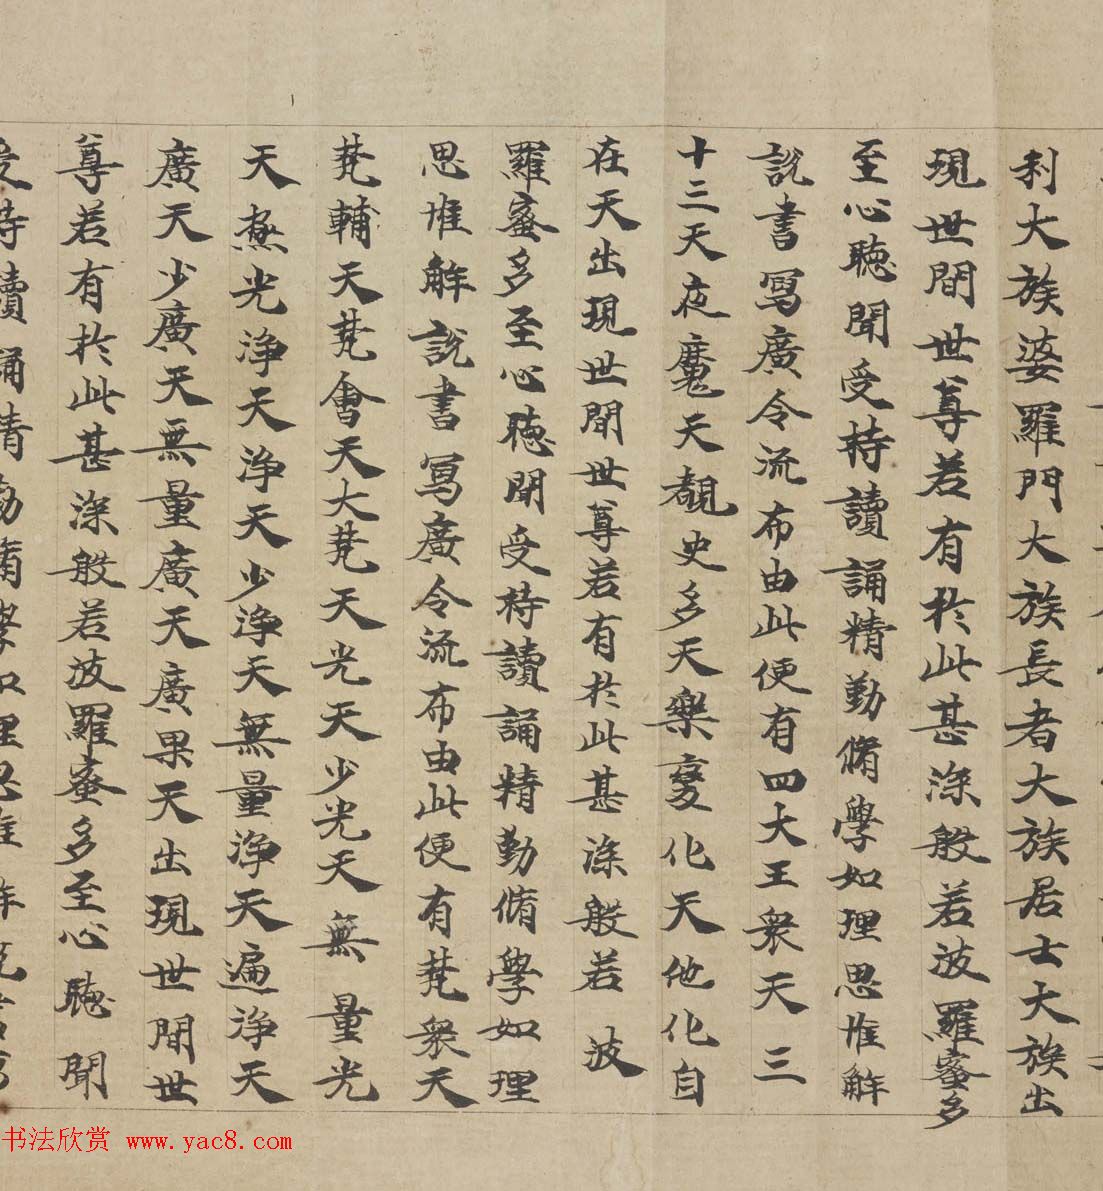 利大族婆羅門大族長者大族居士大族出
現世間世尊若有於此甚深般若波羅蜜多
至心聽聞受持讀誦精勤脩學如理思惟解
說書寫廣令流布由此便有四大王眾天三
十三天夜魔天覩史多天樂變化天他化自
在天出現世間世尊若有於此甚深般若波
羅蜜多至心聽聞受持讀誦精勤脩學如理
思惟解說書寫廣令流布由此便有梵眾天
梵輔天梵會天大梵天光天少光天無量光
天極光淨天淨天少淨天無量淨天遍淨天
廣天少廣天無量廣天廣果天出現世間世
尊若有於此甚深般若波羅蜜多至心聽聞
受持讀誦精勤脩學如理思惟解說書寫
书法欣赏 www.yac8.com